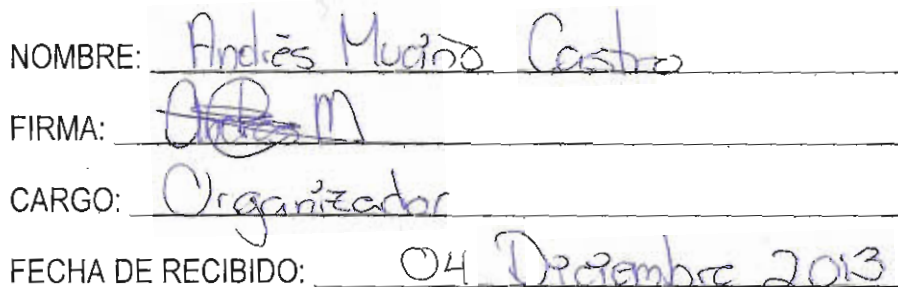 NOMBRE: Andrés Muciño Castro
FIRMA: Andres M
CARGO: Organizador
FECHA DE RECIBIDO: 04 Diciembre 2013